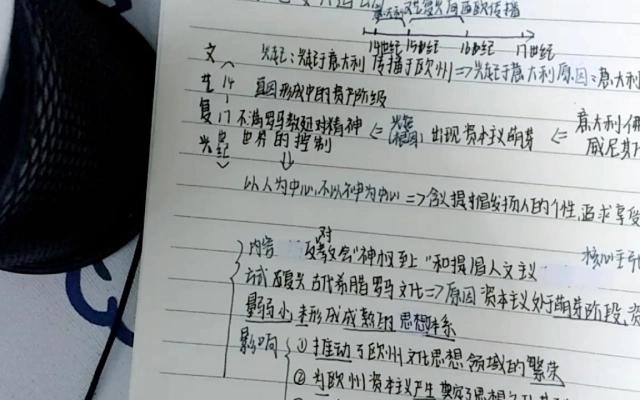 文艺复兴向西欧传播
14世纪 15世纪 16世纪 17世纪
文艺复兴
14-17世纪
兴起:兴起于意大利 传播于欧洲 => 兴起于意大利原因=意大利
形成中的资产阶级
不满罗马教廷对精神世界的控制 <= 兴起(根因) 出现资本主义萌芽 <= 意大利
威尼斯
以人为中心,不以神为中心 => 含义提倡发扬人的个性,追求享受
内容 反对教会"神权至上"和提倡人文主义 核心
方式 复兴古代希腊罗马文化 => 原因 资本主义处于萌芽阶段,资
力量弱小,未形成成熟的思想体系
影响 ① 推动了欧洲文化思想领域的繁荣
② 为欧洲资本主义产生奠定了思想